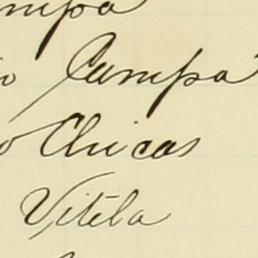 Campa
Chicas
Vitela